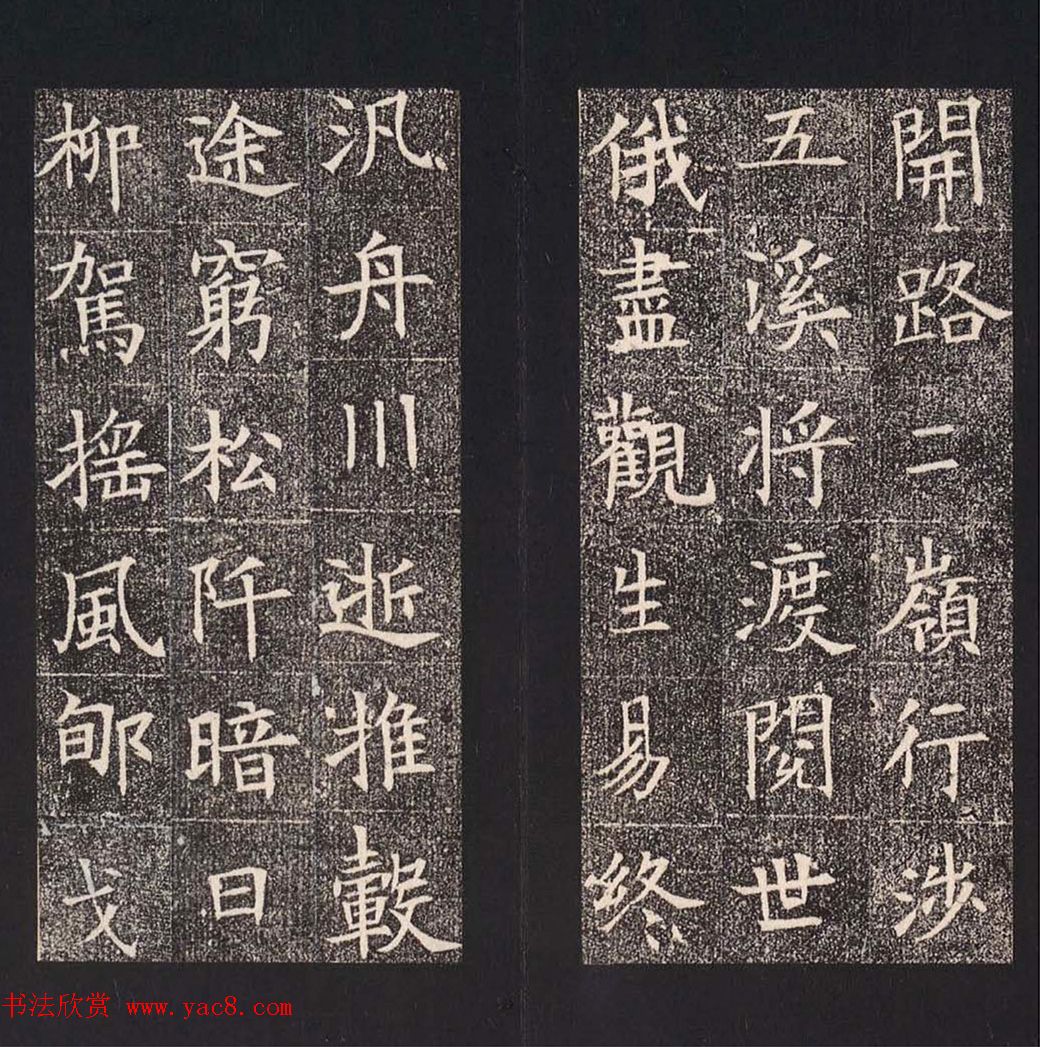 開路二嶺行涉
五溪將渡閱世
俄盡觀生易終
汎舟川逝推轂
途窮松阡暗日
柳駕搖風郇戈
书法欣赏 www.yac8.com